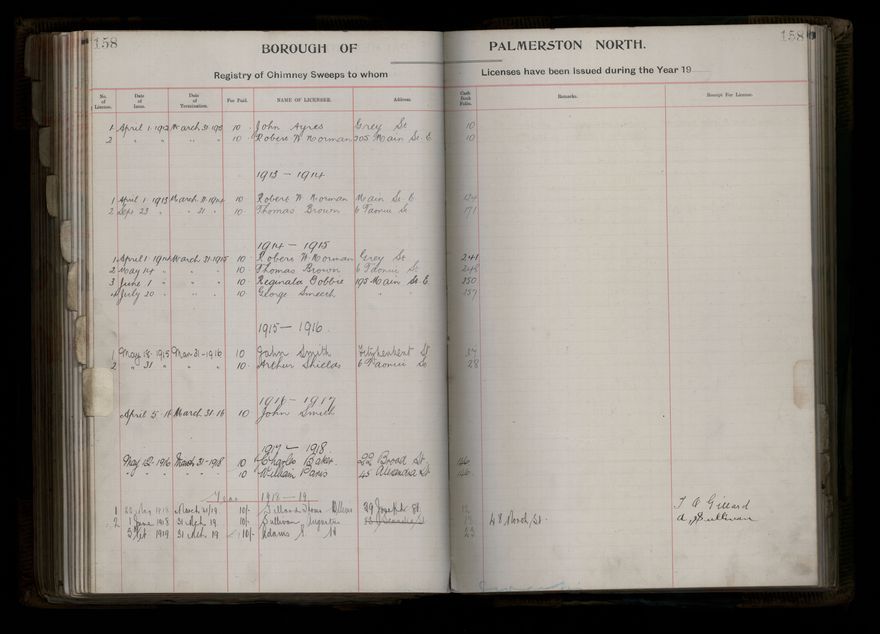 158
158
BOROUGH OF PALMERSTON NORTH.
Registry of Chimney Sweeps to whom Licenses have been issued during the Year 19
No. of License. Date of Issue. Date of Termination. Fee Paid. NAME OF LICENSEE. Address. Cash Book Folio. Remarks. Receipt For License.
1 April 1 1912 March 31 1913 10 John Ayres Grey St 10
2 " " " " 10 Robert W Norman 205 Main St. E. 10
1913 – 1914
1 April 1 1913 March 31 1914 10 Robert W Norman Main St. E
2 Sept 23 " " 31 " 10 Thomas Brown 6 Taonui St 171
1914 – 1915
1 April 1 1914 March 31 1915 10 Robert W Norman Grey St 241
2 May 14 " " " 10 Thomas Brown 6 Taonui St 248
3 June 1 " " " 10 Reginald Bobbie 195 Main St. E. 250
4 July 20 " " " 10 George Smeech " " 257
1915 – 1916
1 May 18 1915 Mar 31-1916 10 John Smith St 37
2 " 31 " " " 10 Arthur Shields 6 Taonui St 28
1916 – 1917
April 5 16 March 31-16 10 John Smith
1917 – 1918
May 12 1916 March 31-1918 10 Charles Baker 22 Broad St 146
" " " " " " 10 William Paris 45 Alexandra St 146
Year 1918 – 19
1 1918 March 31/19 10/- 29 Joseph St 12 T A Gillard
2 1 June 1918 31 Mch 19 10/- Sullivan Augustus 48 North St. A. J Sullivan
3 1919 31 Mch 19 10/- Adams 23